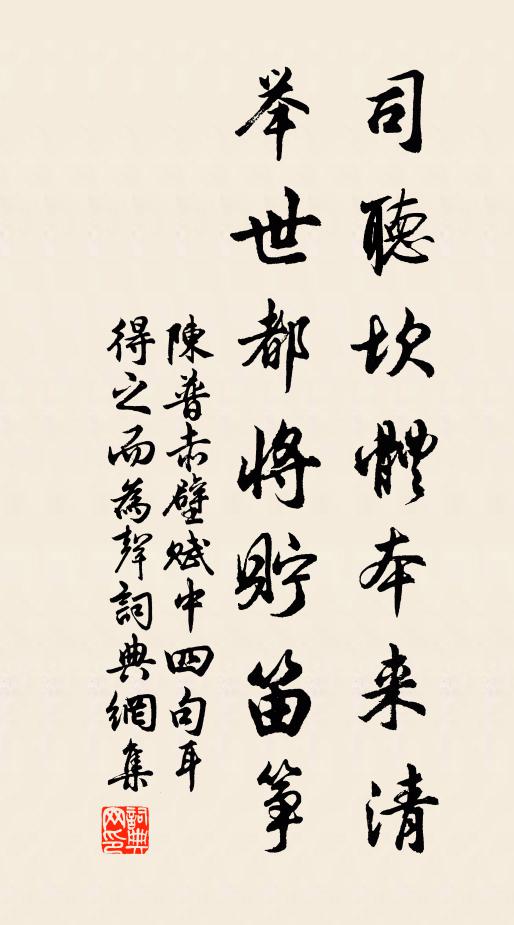 司聽坎體本来清
举世都將貯笛筝
陳普赤壁賦中四句耳
得之而為聲詞典網集
詞典網印